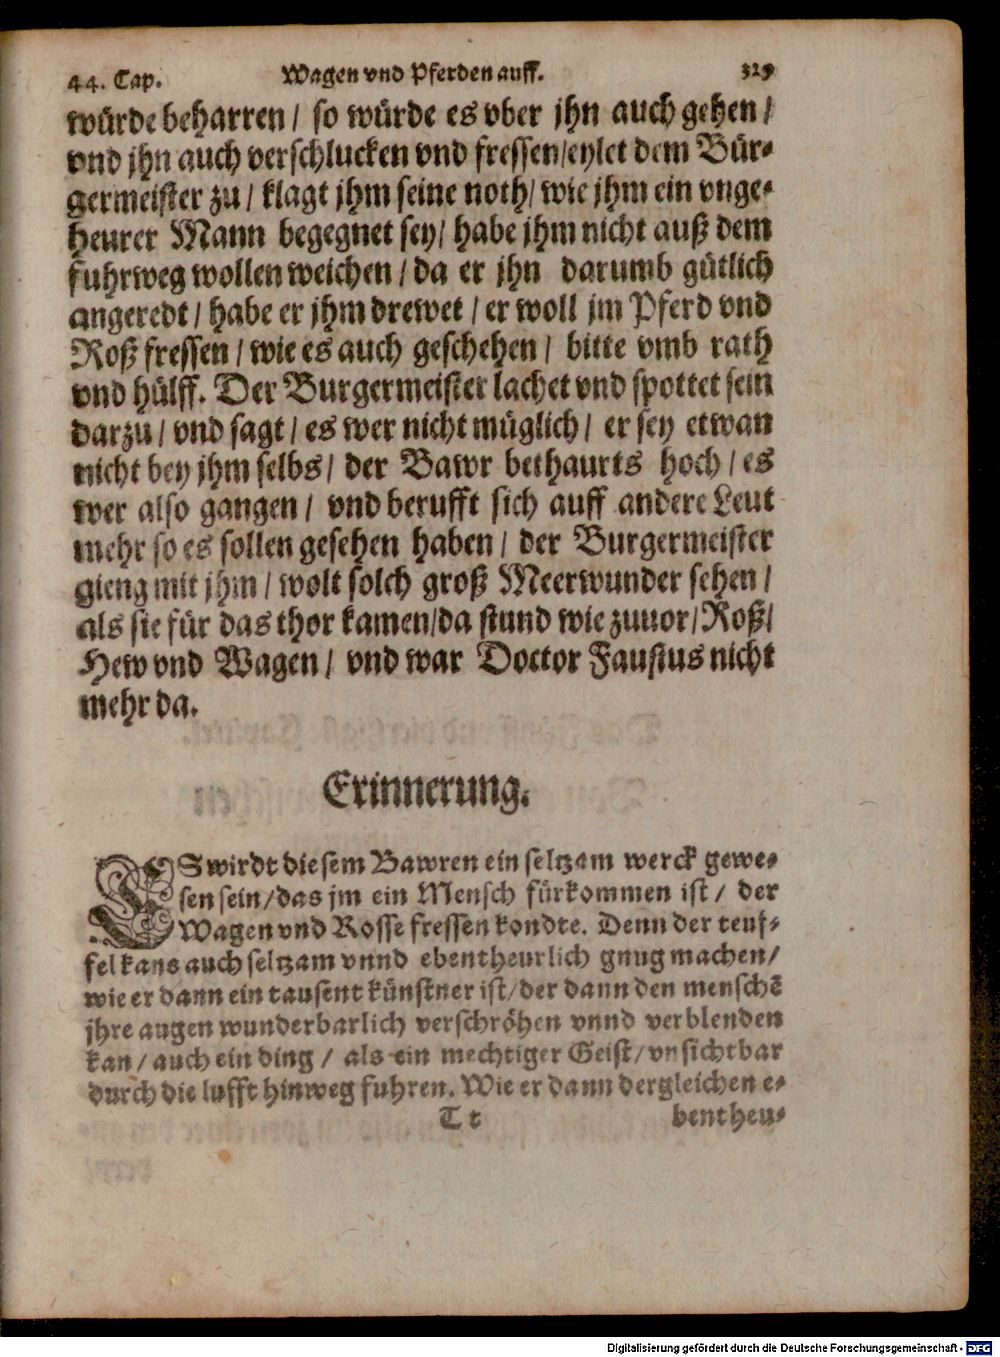 44. Cap. Wagen vnd Pferden auff. 329
würde beharren / so würde es vber jhn auch gehen /
vnd jhn auch verschlucken vnd fressen / eylet dem Bür-
germeister zu / klagt jhm seine noth / wie jhm ein vnge-
heurer Mann begegnet sey / habe jhm nicht auß dem
fuhrweg wollen weichen / da er jhn darumb gütlich
angeredt / habe er jhm drewet / er woll jm Pferd vnd
Roß fressen / wie es auch geschehen / bitte vmb rath
vnd hülff. Der Burgermeister lachet vnd spottet sein
darzu / vnd sagt / es wer nicht müglich / er sey etwan
nicht bey jhm selbs / der Bawr bethaurts hoch / es
wer also gangen / vnd berufft sich auff andere Leut
mehr so es sollen gesehen haben / der Burgermeister
gieng mit jhm / wolt solch groß Meerwunder sehen /
als sie für das thor kamen / da stund wie zuuor / Roß /
Hew vnd Wagen / vnd war Doctor Faustus nicht
mehr da.
Erinnerung.
ES wirdt diesem Bawren ein seltzam werck gewe-
sen sein / das jm ein Mensch fürkommen ist / der
Wagen vnd Rosse fressen kondte. Denn der teuf-
fel kans auch seltzam vnnd ebentheurlich gnug machen /
wie er dann ein tausent künstner ist / der dann den menschē
jhre augen wunderbarlich verschröhen vnnd verblenden
kan / auch ein ding / als ein mechtiger Geist / vnsichtbar
durch die lufft hinweg fuhren. Wie er dann dergleichen e-
T t bentheu-
Digitalisierung gefördert durch die Deutsche Forschungsgemeinschaft - DFG